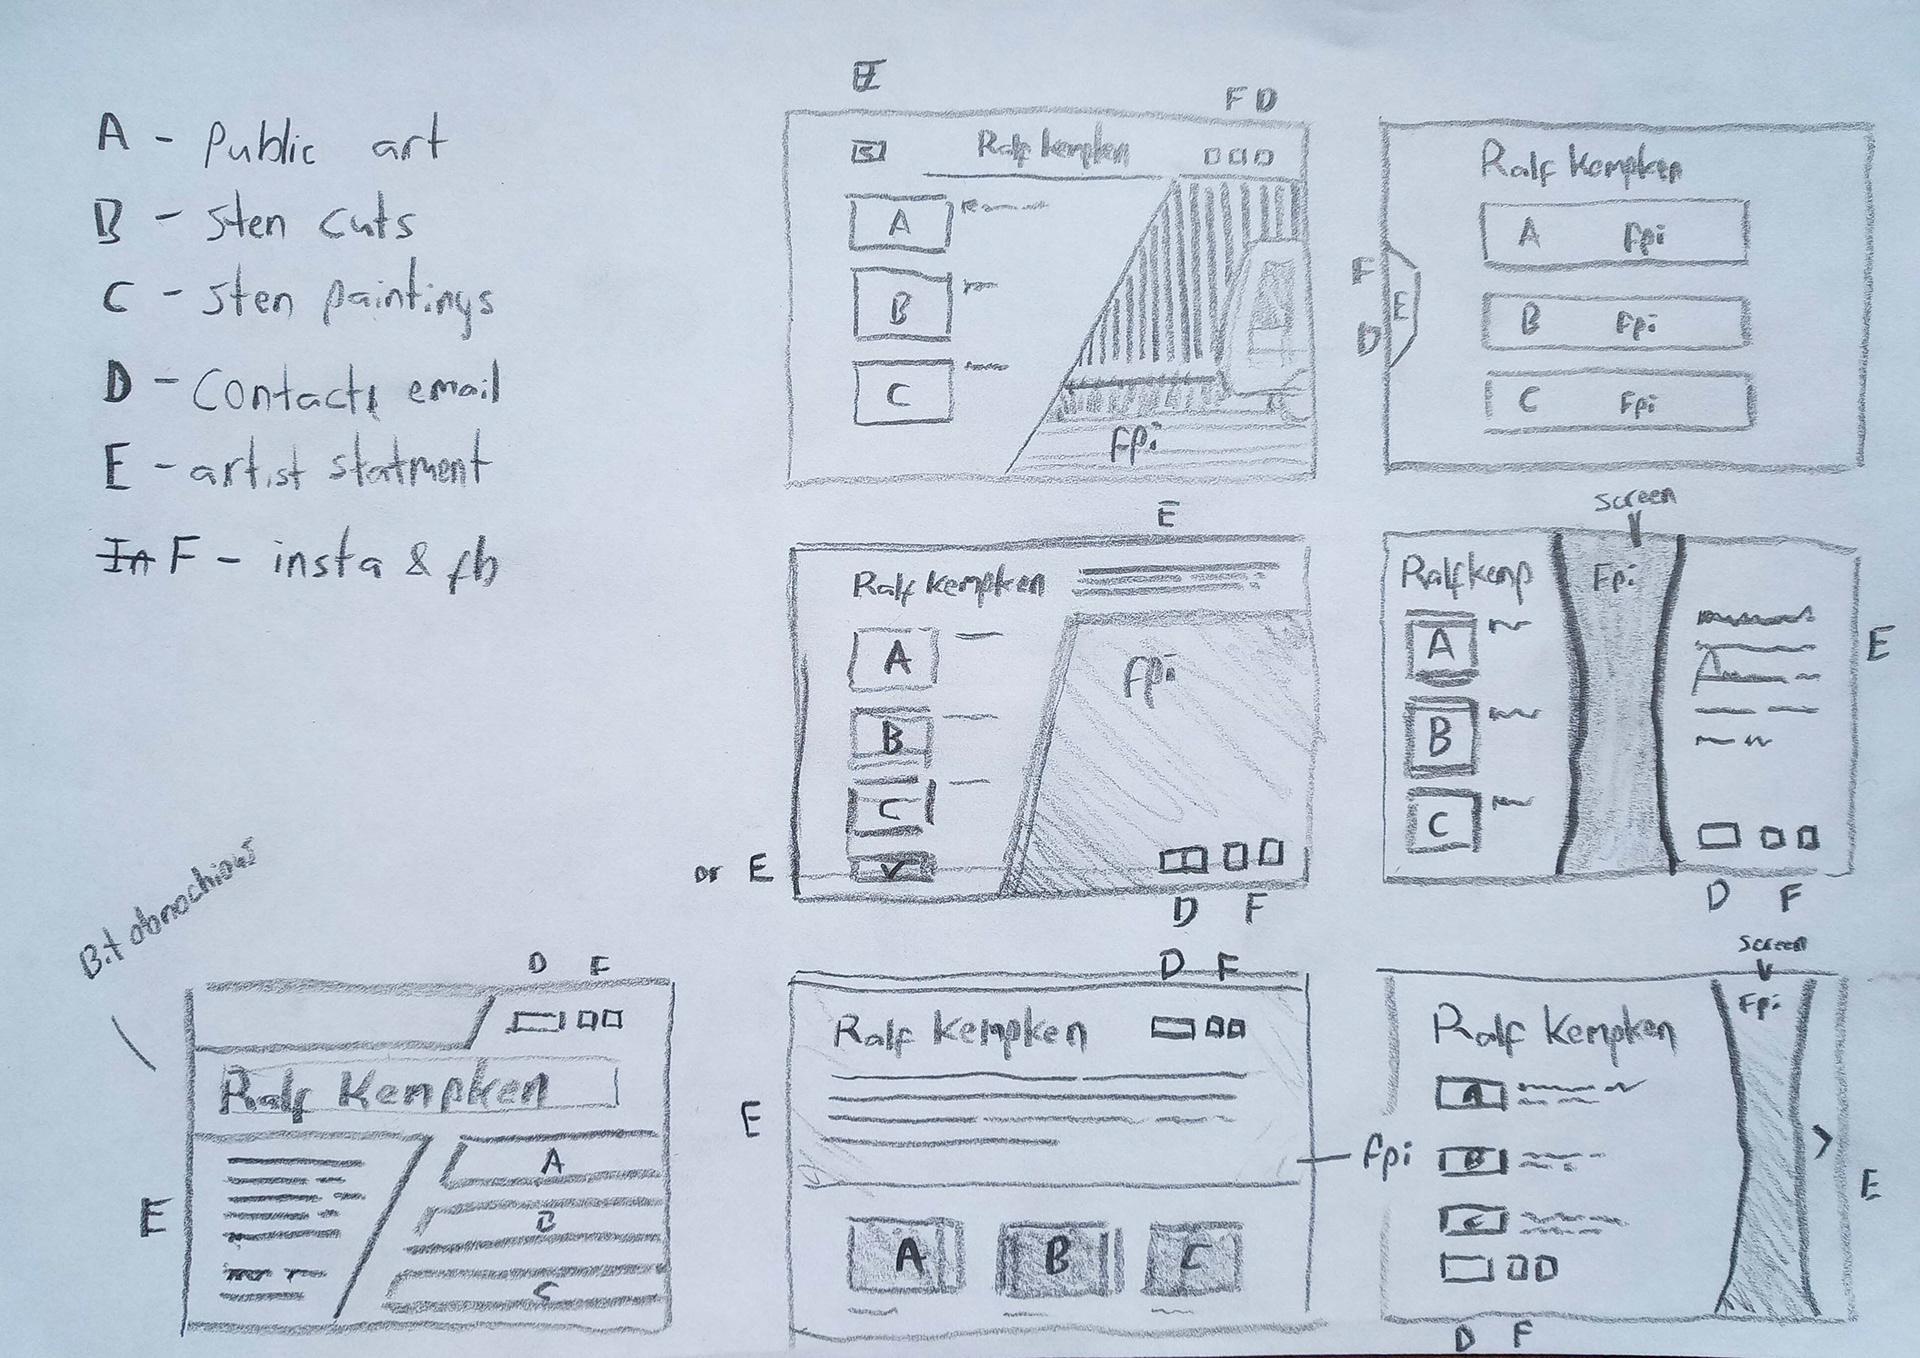 A - Public art
B - Sten cuts
C - Sten paintings
D - Contact, email
E - artist statment
In F - insta & fb
E
F D
Ralf kempken
A
B
C
fpi
Ralf Kempken
A fpi
B fpi
C fpi
F
E
D
E
Ralf kempken
A
B
C
fpi
or E
D F
Screen
Ralf kemp
fpi
A
B
C
E
D F
Bit obnochious
D F
Ralf Kempken
A
B
C
E
D F
Ralf Kempken
E
fpi
A B C
Screen
fpi
Ralf Kempken
A
B
C
E
D F